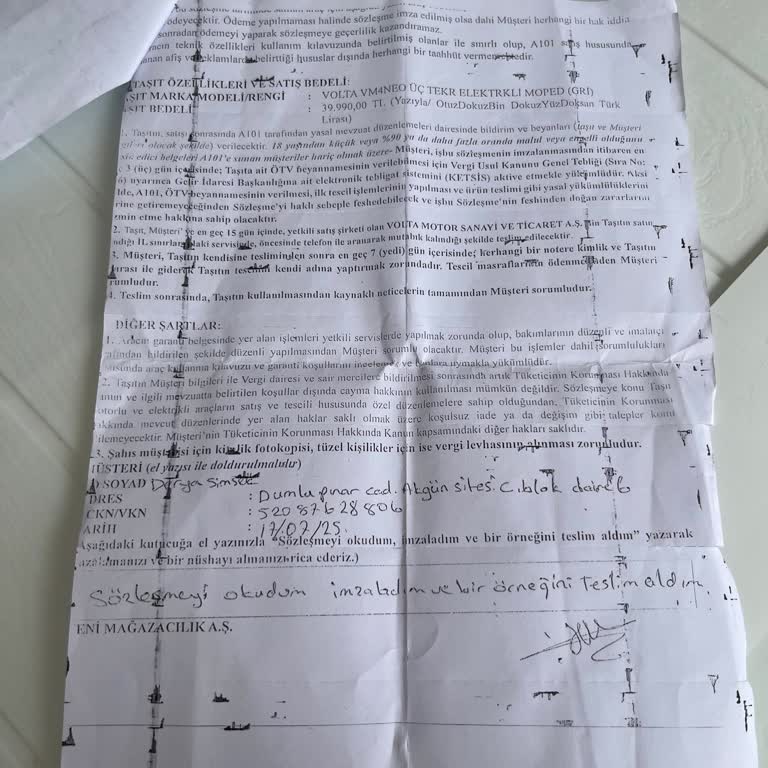 ödeyecektir. Ödeme yapılmaması halinde sözleşme imza edilmiş olsa dahi Müşteri herhangi bir hak iddia
sonradan ödemeyi yaparak sözleşmeye geçerlilik kazandıramaz.
teknik özellikleri kullanım kılavuzunda belirtilmiş olanlar ile sınırlı olup, A101 satış hususunda
afiş ve reklamlarda belirttiği hususlar dışında herhangi bir taahhüt vermemektedir.
TAŞIT ÖZELLİKLERİ VE SATIŞ BEDELİ:
MARKA/MODELİ/RENGİ : VOLTA VM4NEO ÜÇ TEKR ELEKTRKLİ MOPED (GRİ)
BEDELİ : 39.990,00 TL (Yazıyla/ OtuzDokuzBin DokuzYüzDoksan Türk
Lirası)
1. Taşıtın, satışı sonrasında A101 tarafından yasal mevzuat düzenlemeleri dairesinde bildirim ve beyanları (taşıt ve Müşteri
olacak şekilde) verilecektir. 18 yaşından küçük veya %90 ya da daha fazla oranda malul veya engelli olduğunu
edici belgeleri A101'e sunan müşteriler hariç olmak üzere- Müşteri, işbu sözleşmenin imzalanmasından itibaren en
3 (üç) gün içerisinde; Taşıta ait ÖTV beyannamesinin verilebilmesi için Vergi Usul Kanunu Genel Tebliği (Sıra No:
uyarınca Gelir İdaresi Başkanlığına ait elektronik tebligat sistemini (KETSİS) aktive etmekle yükümlüdür. Aksi
A101, ÖTV beyannamesinin verilmesi, ilk tescil işlemlerinin yapılması ve ürün teslimi gibi yasal yükümlülüklerini
getiremeyeceğinden Sözleşme'yi haklı sebeple feshedebilecek ve işbu Sözleşme'nin feshinden doğan zararlarını
etme hakkına sahip olacaktır.
2. Taşıt, Müşteri'ye en geç 15 gün içinde, yetkili satış şirketi olan VOLTA MOTOR SANAYİ VE TİCARET A.Ş.'nin Taşıtın satın
İL sınırlarındaki servisinde, öncesinde telefon ile aranarak mutabık kalındığı şekilde teslim edilecektir.
3. Müşteri, Taşıtın kendisine tesliminden sonra en geç 7 (yedi) gün içerisinde; herhangi bir notere kimlik ve Taşıtın
ile giderek Taşıtın tescilini kendi adına yaptırmak zorundadır. Tescil masraflarının ödenmesinden Müşteri
4. Teslim sonrasında, Taşıtın kullanılmasından kaynaklı neticelerin tamamından Müşteri sorumludur.
DİĞER ŞARTLAR:
1. Aracın garanti belgesinde yer alan işlemleri yetkili servislerde yapılmak zorunda olup, bakımlarının düzenli ve imalatçı
bildirilen şekilde düzenli yapılmasından Müşteri sorumlu olacaktır. Müşteri bu işlemler dahil sorumlulukları
araç kullanma kılavuzu ve garanti koşullarını incelemek ve bunlara uymakla yükümlüdür.
2. Taşıtın Müşteri bilgileri ile Vergi dairesi ve sair mercilere bildirilmesi sonrasında artık Tüketicinin Korunması Hakkında
ve ilgili mevzuatta belirtilen koşullar dışında cayma hakkının kullanılması mümkün değildir. Sözleşmeye konu Taşıt
ve elektrikli araçların satış ve tescili hususunda özel düzenlemelere sahip olduğundan, Tüketicinin Korunması
mevcut düzenlemelerde yer alan haklar saklı olmak üzere koşulsuz iade ya da değişim gibi talepler konu
Müşteri'nin Tüketicinin Korunması Hakkında Kanun kapsamındaki diğer hakları saklıdır.
3. Şahıs müşterisi için kimlik fotokopisi, tüzel kişilikler için ise vergi levhasının alınması zorunludur.
MÜŞTERİ (el yazısı ile doldurulmalıdır)
SOYAD Derya Şimşek
: Dumlupınar cad. Akgün sitesi C.blok daire 6
CKN/VKN : 52087628806
ARİH : 17/07/25.
Aşağıdaki kutucuğa el yazınızla "Sözleşmeyi okudum, imzaladım ve bir örneğini teslim aldım" yazarak
ve bir nüshayı almanızı rica ederiz.)
Sözleşmeyi okudum imzaladım ve bir örneğini teslim aldım.
ENİ MAĞAZACILIK A.Ş.